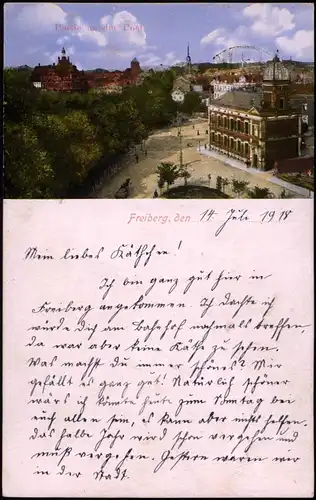 Partie an der Post
Freiberg, den 14 Juli 1918
Mein liebes Käthchen!
Ich bin ganz gut hier in
Freiberg angekommen. Ich dachte ich
würde dich am Bahnhof nochmals treffen,
da war aber keine Käthe zu sehen.
Was machst du immer schönes? Mir
gefällt es ganz gut! Natürlich schöner
wärs ich könnte heute zum Sonntag bei
euch allen sein, es kann aber nichts helfen.
das halbe Jahr wird schon vergehen und
muß vergehen. Gestern waren wir
in der Stadt.